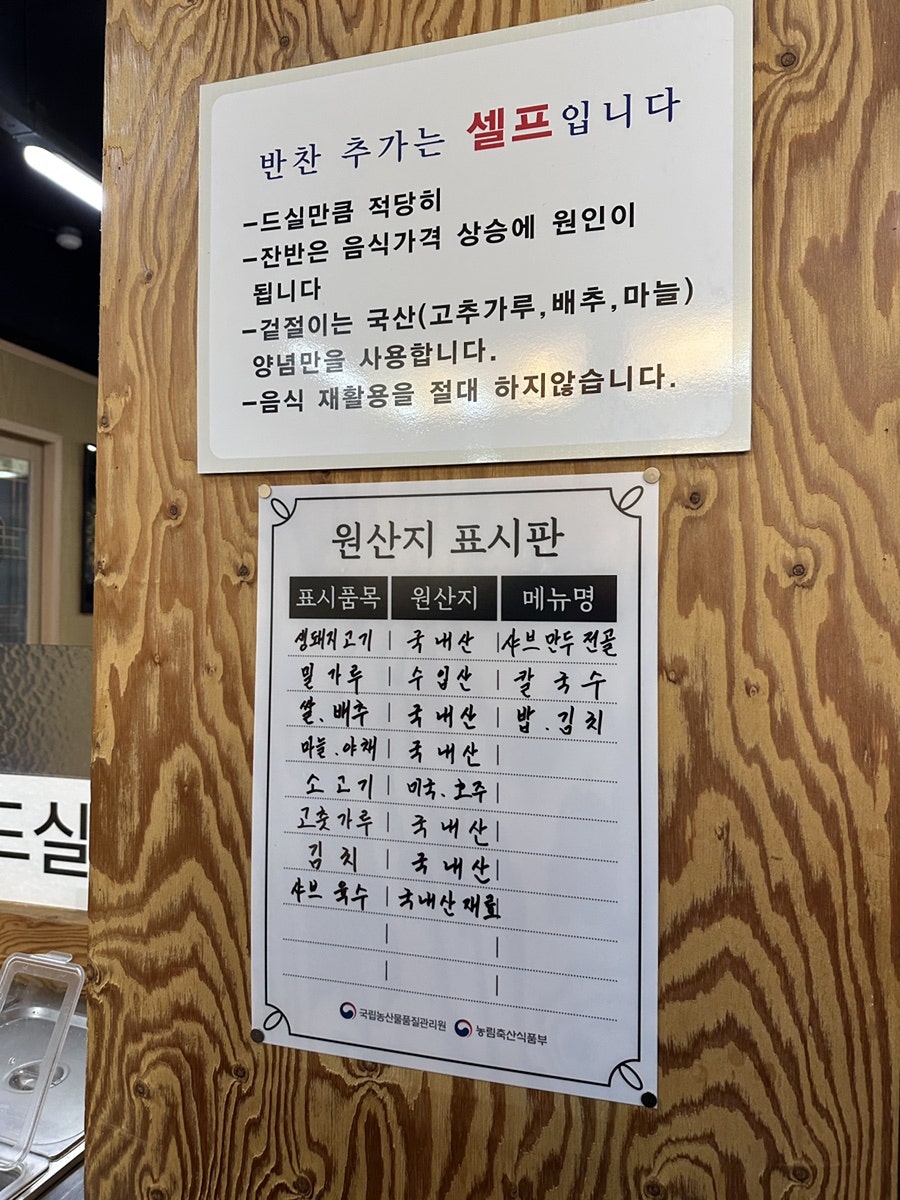 반찬 추가는 셀프입니다
-드실만큼 적당히
-잔반은 음식가격 상승에 원인이
됩니다
-겉절이는 국산(고추가루,배추,마늘)
양념만을 사용합니다.
-음식 재활용을 절대 하지않습니다.
원산지 표시판
표시품목 원산지 메뉴명
생돼지고기 국내산 샤브만두전골
밀가루 수입산 칼국수
쌀.배추 국내산 밥.김치
마늘.야채 국내산
소고기 미국.호주
고춧가루 국내산
김치 국내산
샤브육수 국내산재료
국립농산물품질관리원 농림축산식품부
드실